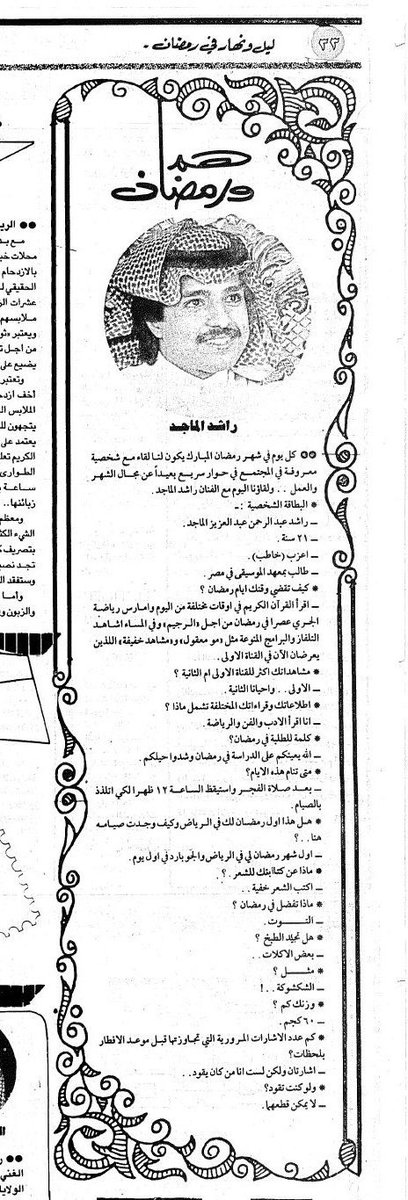 ٢٢ ليل ونهار في رمضان -
هم
ورمضان
راشد الماجد
●● كل يوم في شهر رمضان المبارك يكون لنا لقاء مع شخصية
معروفة في المجتمع في حوار سريع بعيداً عن مجال الشهر
والعمل . . ولقاؤنا اليوم مع الفنان راشد الماجد.
* البطاقة الشخصية :ـ
ـ راشد عبد الرحمن عبد العزيز الماجد.
ـ ٢١ سنة.
ـ اعزب (خاطب).
ـ طالب بمعهد الموسيقى في مصر.
* كيف تقضي وقتك ايام رمضان ؟
ـ اقرأ القرآن الكريم في اوقات مختلفة من اليوم وامارس رياضة
الجري عصرا في رمضان من اجل «الرجيم» وفي المساء اشاهد
التلفاز والبرامج المنوعة مثل «مو معقول» و«مشاهد خفيفة» اللذين
يعرضان الآن في القناة الاولى.
* مشاهداتك اكثر للقناة الاولى ام الثانية ؟
ـ الاولى . . واحيانا الثانية .
* اطلاعاتك وقراءاتك المختلفة تشمل ماذا ؟
ـ انا اقرأ الادب والفن والرياضة .
* كلمة للطلبة في رمضان؟
ـ الله يعينكم على الدراسة في رمضان وشدوا حيلكم.
* متى تنام هذه الايام؟
ـ بعد صلاة الفجر واستيقظ الساعة ١٢ ظهرا لكي اتلذذ
بالصيام.
* هل هذا اول رمضان لك في الرياض وكيف وجدت صيامه
هنا . .؟
ـ اول شهر رمضان لي في الرياض والجو بارد في اول يوم.
* ماذا عن كتابتك للشعر .؟
ـ اكتب الشعر خفية . .
* ماذا تفضل في رمضان ؟
ـ التوت.
* هل تجيد الطبخ ؟
ـ بعض الاكلات . .
* مثل ؟
ـ الشكشوكة . . !
* وزنك كم ؟
ـ ٦٠ كجم.
* كم عدد الاشارات المرورية التي تجاوزتها قبل موعد الافطار
بلحظات؟
ـ اشارتان ولكن لست انا من كان يقود. .
* ولو كنت تقود؟
ـ لا يمكن قطعهما.